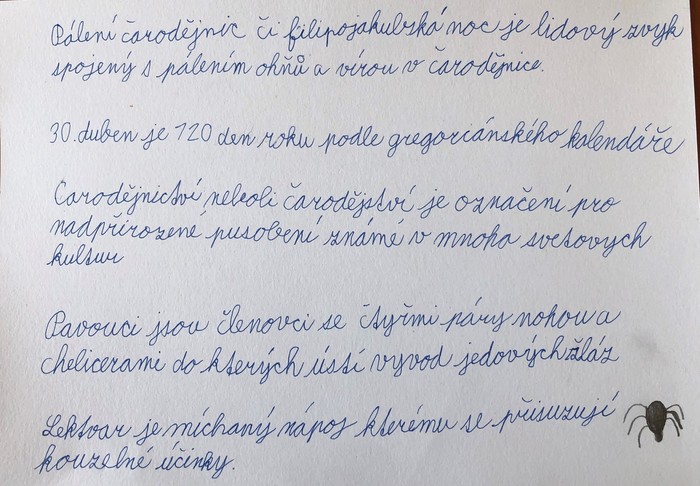 Pálení čarodějnic či filipojakubská noc je lidový zvyk
spojený s pálením ohňů a vírou v čarodějnice.
30. duben je 120 den roku podle gregoriánského kalendáře
Čarodějnictví neboli čarodějství je označení pro
nadpřirozené pusobení známé v mnoha svetovych
kultur
Pavouci jsou členovci se čtyřmi páry nohou a
chelicerami do kterých ústí vyvod jedových žláz
Lektvar je míchaný nápoj kterému se přisuzují
kouzelné účinky.